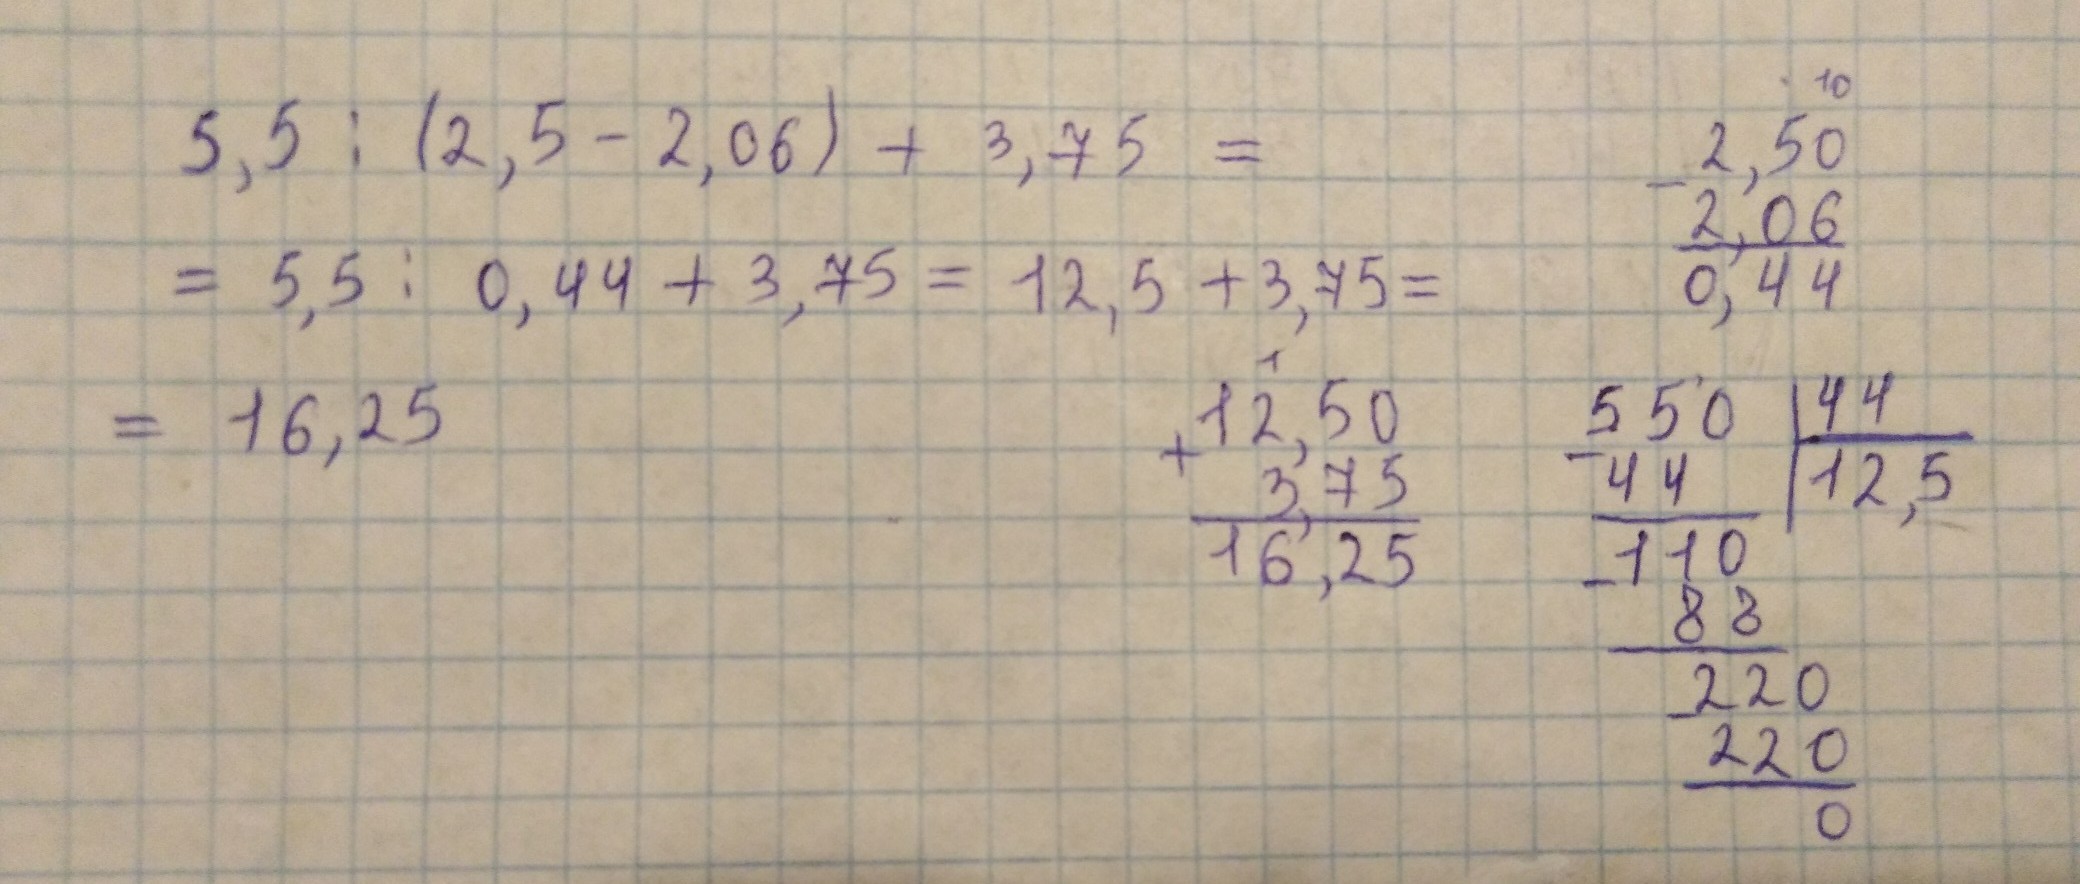 5,5 : (2,5 - 2,06) + 3,75 =
= 5,5 : 0,44 + 3,75 = 12,5 + 3,75 =
= 16,25
10
- 2,50
2,06
0,44
1
+ 12,50
3,75
16,25
- 550 | 44
44 | 12,5
- 110
88
- 220
220
0